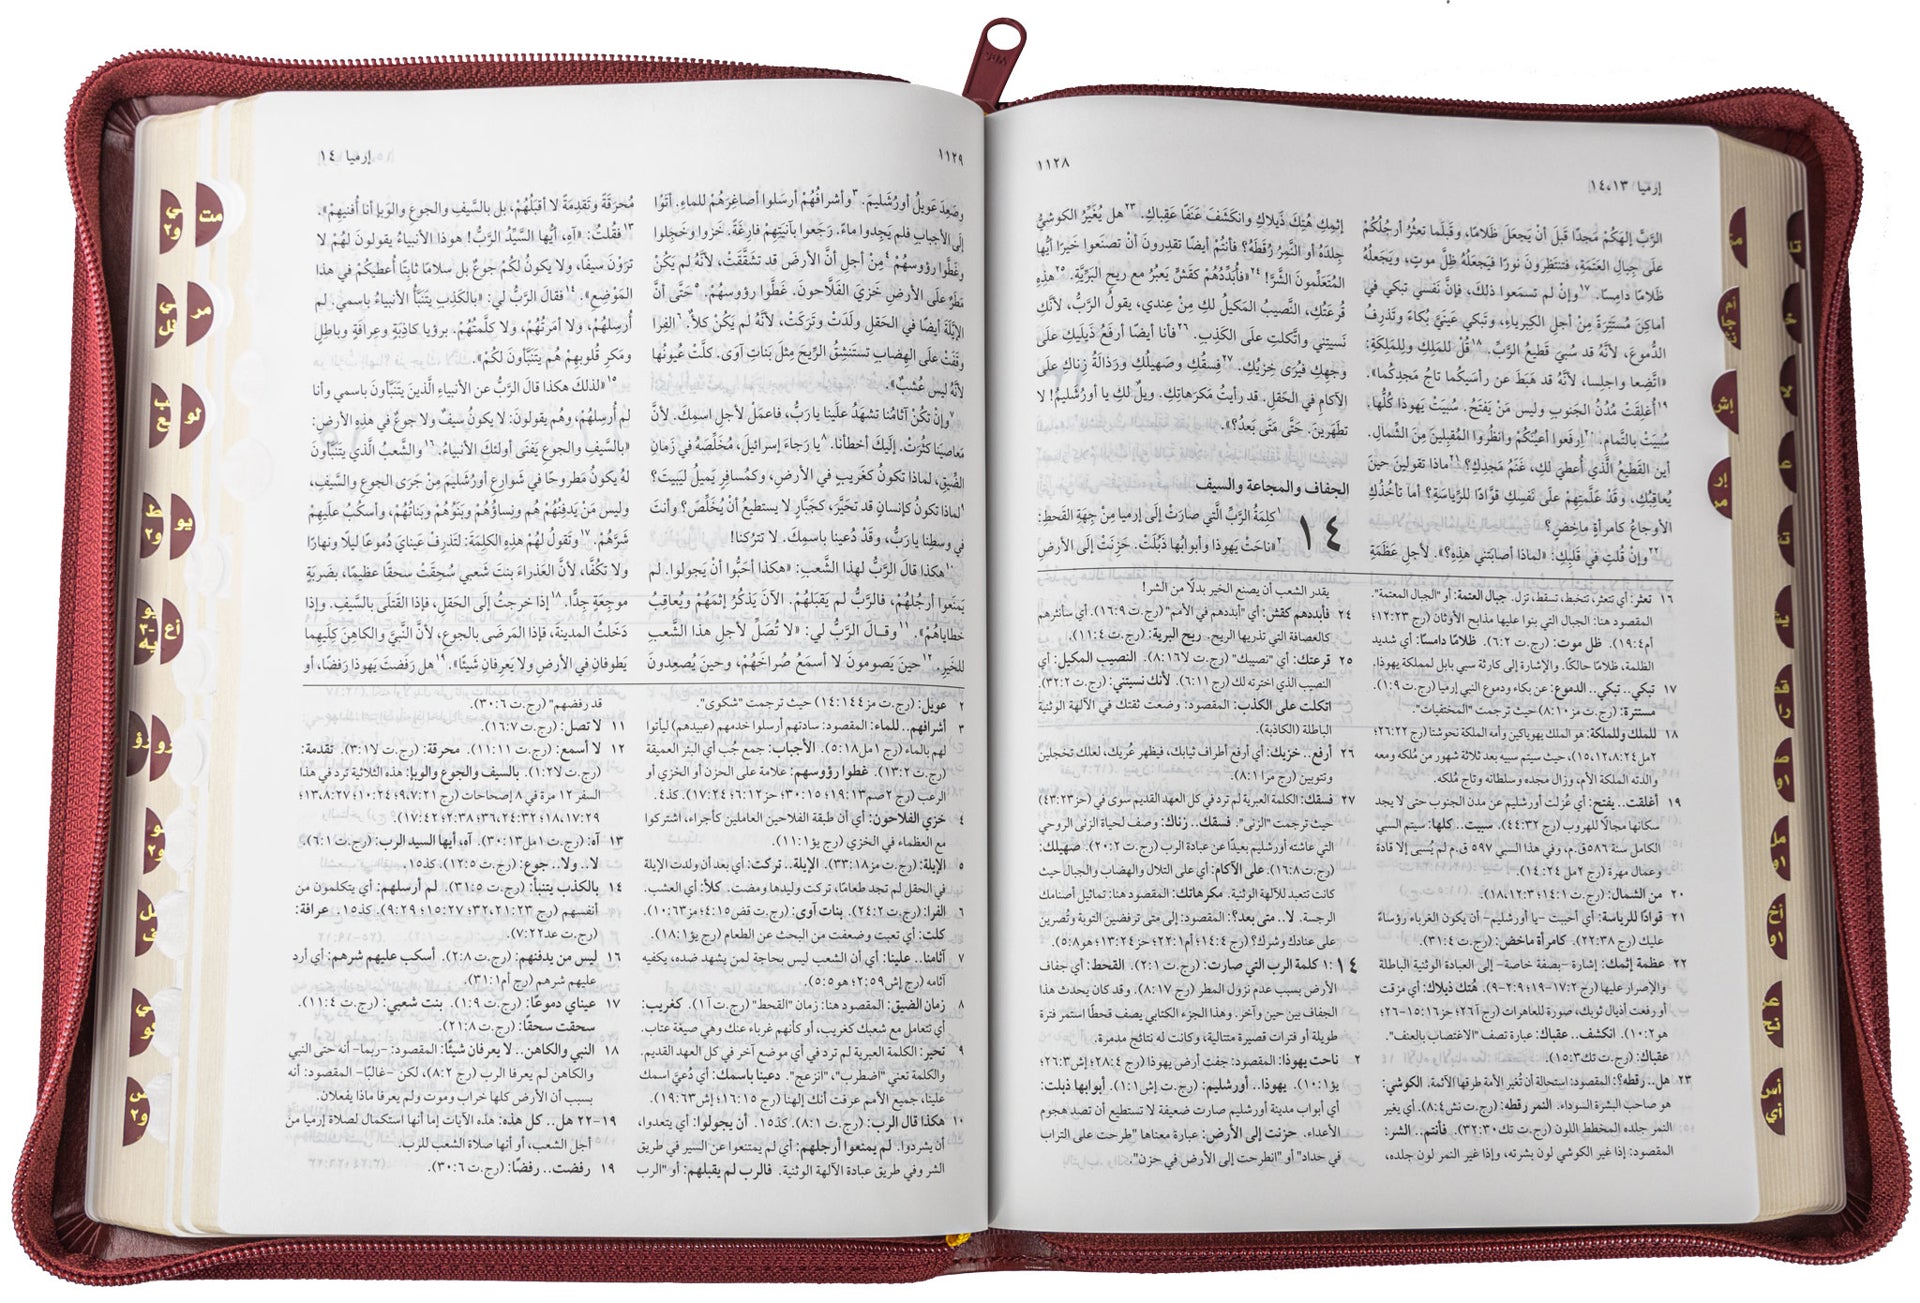 إرميا ١٣، ١٤
١١٢٨
الرَّبَّ إلهَكُمْ مَجدًا قَبلَ أنْ يَجعَلَ ظَلامًا، وقَبلَما تعثُرُ أرجُلُكُمْ
علَى جِبالِ العَتَمَةِ، فتنتَظِرونَ نورًا فيَجعَلُهُ ظِلَّ موتٍ، ويَجعَلُهُ
ظَلامًا دامِسًا. ١٧وإنْ لم تسمَعوا ذلكَ، فإنَّ نَفسي تبكي في
أماكِنَ مُستَتِرَةٍ مِنْ أجلِ الكِبرياءِ، وتَبكي عَينَيَّ بُكاءً وتَذرِفُ
الدُّموعَ، لأنَّهُ قد سُبيَ قَطيعُ الرَّبِّ. ١٨قُلْ للمَلِكِ وللمَلِكَةِ:
«اتَّضِعا واجلِسا، لأنَّهُ قد هَبَطَ عن رأسَيكُما تاجُ مَجدِكُما».
١٩أُغلِقَتْ مُدُنُ الجَنوبِ وليس مَنْ يَفتَحُ. سُبيَتْ يَهوذا كُلُّها.
سُبيَتْ بالتَّمامِ. ٢٠اِرفَعوا أعيُنَكُمْ وانظُروا المُقبِلينَ مِنَ الشِّمالِ.
أين القَطيعُ الَّذي أُعطيَ لكِ، غَنَمُ مَجدِكِ؟ ٢١ماذا تقولينَ حينَ
يُعاقِبُكِ، وقَدْ عَلَّمتِهِمْ علَى نَفسِكِ قوّادًا للرِّياسَةِ؟ أما تأخُذُكِ
الأوجاعُ كامرأةٍ ماخِضٍ؟
٢٢وإنْ قُلتِ في قَلبِكِ: «لماذا أصابَتني هذِهِ؟». لأجلِ عَظَمَةِ
إثمِكِ هُتِكَ ذَيلاكِ وانكَشَفَ عَنفًا عَقِباكِ. ٢٣هل يُغَيِّرُ الكوشيُّ
جِلدَهُ أو النَّمِرُ رُقَطَهُ؟ فأنتُمْ أيضًا تقدِرونَ أنْ تصنَعوا خَيرًا أيُّها
المُتَعَلِّمونَ الشَّرَّ! ٢٤«فأُبَدِّدُهُمْ كقَشٍّ يَعبُرُ مع ريحِ البَرّيَّةِ. ٢٥هذِهِ
قُرعَتُكِ، النَّصيبُ المَكيلُ لكِ مِنْ عِندي، يقولُ الرَّبُّ، لأنَّكِ
نَسيتِني واتَّكلتِ علَى الكَذِبِ. ٢٦فأنا أيضًا أرفَعُ ذَيلَيكِ علَى
وَجهِكِ فيُرَى خِزيُكِ. ٢٧فِسقُكِ وصَهيلُكِ ورَذالَةُ زِناكِ علَى
الآكامِ في الحَقلِ. قد رأيتُ مَكرَهاتِكِ. ويلٌ لكِ يا أورُشَليمُ! لا
تطهُرينَ. حَتَّى مَتَى بَعدُ؟».
الجفاف والمجاعة والسيف
١٤ ١كلِمَةُ الرَّبِّ الَّتي صارَتْ إلَى إرميا مِنْ جِهَةِ القَحطِ:
٢«ناحَتْ يَهوذا وأبوابُها ذَبُلَتْ. حَزِنَتْ إلَى الأرضِ
١٦ تعثر: أي تتعثر، تتخبط، تسقط، تزل. جبال العتمة: أو "الجبال المعتمة".
المقصود هنا: الجبال التي بنوا عليها مذابح الأوثان (رج ١٢:٢٣؛
أم٤:١٩). ظل موت: (رج.ت ٦:٢). ظلامًا دامسًا: أي شديد
الظلمة، ظلامًا حالكًا. والإشارة إلى كارثة سبي بابل لمملكة يهوذا.
١٧ تبكي.. تبكي.. الدموع: عن بكاء ودموع النبي إرميا (رج.ت ١:٩).
مستترة: (رج.ت ١٠:٨) حيث ترجمت "المختفيات".
١٨ للملك وللملكة: هو الملك يهوياكين وأمه الملكة نحوشتا (رج ٢٦:٢٢؛
٢مل٨:٢٤، ١٢، ١٥)، حيث سيتم سبيه بعد ثلاثة شهور من مُلكه ومعه
والدته الملكة الأم، وزال مجده وسلطانه وتاج مُلكه.
١٩ أغلقت.. يفتح: أي عُزلت أورشليم عن مدن الجنوب حتى لا يجد
سكانها مجالًا للهروب (رج ٤٤:٣٢). سبيت.. كلها: سيتم السبي
الكامل سنة ٥٨٦ق.م، وفي هذا السبي ٥٩٧ ق.م لم يُسبى إلا قادة
وعمال مهرة (رج ٢مل ١٤:٢٤).
٢٠ من الشمال: (رج.ت ١٤:١؛ ١٢:٣، ١٨).
٢١ قوادًا للرياسة: أي أحببت -يا أورشليم- أن يكون الغرباء رؤساءً
عليك (رج ٢٢:٣٨). كامرأة ماخض: (رج.ت ٣١:٤).
٢٢ عظمة إثمك: إشارة -بصفة خاصة- إلى العبادة الوثنية الباطلة
والإصرار عليها (رج ١٧:٢-١٩؛ ٢:٩-٩). هُتك ذيلاك: أي مزقت
أو رفعت أذيال ثوبك، صورة للعاهرات (رج آ٢٦؛ حز١٦:١٥-٢٦؛
هو٢:١٠). انكشف.. عقباك: عبارة تصف "الاغتصاب بالعنف".
عقباك: (رج.ت تك٣:١٥).
٢٣ هل.. رقطه؟: المقصود: استحالة أن تُغير الأمة طرقها الآثمة. الكوشي:
هو صاحب البشرة السوداء. النمر رقطه: (رج.ت نش٤:٨). أي يغير
النمر جلده المخطط اللون (رج.ت تك ٣٢:٣٠). فأنتم.. الشر:
المقصود: إذا غير الكوشي لون بشرته، وإذا غير النمر لون جلده،
يقدر الشعب أن يصنع الخير بدلًا من الشر!
٢٤ فأبددهم كقش: (أي "أبددهم في الأمم" (رج.ت ١٦:٩). أي سأنثرهم
كالعصافة التي تذريها الريح. ريح البرية: (رج.ت ١١:٤).
٢٥ قرعتك: أي "نصيبك" (رج.ت لا١٦:٨). النصيب المكيل: أي
النصيب الذي اخترته لك (رج ١١:٦). لأنك نسيتني: (رج.ت ٣٢:٢).
اتكلت على الكذب: المقصود: وضعت ثقتك في الآلهة الوثنية
الباطلة (الكاذبة).
٢٦ أرفع.. خزيك: أي أرفع أطراف ثيابك، فيظهر عُريك، لعلك تخجلين
وتتوبين (رج مرا٨:١).
٢٧ فسقك: الكلمة العبرية لم ترد في كل العهد القديم سوى في (حز٢٣:٤٣)
حيث ترجمت "الزنى". فسقك.. زناك: وصف لحياة الزنى الروحي
التي عاشته أورشليم بعيدًا عن عبادة الرب (رج.ت ٢٠:٢). صهيلك:
(رج.ت ١٦:٨). على الآكام: أي على التلال والهضاب والجبال حيث
كانت تتعبد للآلهة الوثنية. مكرهاتك: المقصود هنا: تماثيل أصنامك
الرجسة. لا.. متى بعد؟: المقصود: إلى متى ترفضين التوبة وتُصرين
على عنادك وشرك؟ (رج ١٤:٤؛ أم٢٢:١؛ حز١٣:٢٤؛ هو٥:٨).
١:١٤ كلمة الرب التي صارت: (رج.ت ١:٢). القحط: أي جفاف
الأرض بسبب عدم نزول المطر (رج ١٧:٨). وقد كان يحدث هذا
الجفاف بين حين وآخر. وهذا الجزء الكتابي يصف قحطًا استمر فترة
طويلة أو فترات قصيرة متتالية، وكانت له نتائج مدمرة.
٢ ناحت يهوذا: المقصود: جفت أرض يهوذا (رج ٢٨:٤؛ إش٢٦:٣؛
يؤ١٠:١). يهوذا.. أورشليم: (رج.ت إش١:١). أبوابها ذبلت:
أي أبواب مدينة أورشليم صارت ضعيفة لا تستطيع أن تصد هجوم
الأعداء. حزنت إلى الأرض: عبارة معناها "طرحت على التراب
في حداد" أو "انطرحت إلى الأرض في حزن".
١١٢٩
إرميا ١٤
وصَعِدَ عَويلُ أورُشَليمَ. ٣وأشرافُهُمْ أرسَلوا أصاغِرَهُمْ للماءِ. أتَوْا
إلَى الأجبابِ فلم يَجِدوا ماءً. رَجَعوا بآنيَتِهِمْ فارِغَةً. خَزوا وخَجِلوا
وغَطَّوا رؤوسَهُمْ ٤مِنْ أجلِ أنَّ الأرضَ قد تشَقَّقَتْ، لأنَّهُ لم يَكُنْ
مَطَرٌ علَى الأرضِ خَزيَ الفَلّاحونَ. غَطَّوا رؤوسَهُمْ. ٥حَتَّى أنَّ
الإيَّلَةَ أيضًا في الحَقلِ ولَدَتْ وتَرَكَتْ، لأنَّهُ لم يَكُنْ كلأٌ. ٦الفِرا
وقَفَتْ علَى الهِضابِ تستَنشِقُ الرِّيحَ مِثلَ بَناتِ آوَى. كلَّتْ عُيونُها
لأنَّهُ ليس عُشبٌ».
٧وإنْ تكُنْ آثامُنا تشهَدُ علَينا يا رَبُّ، فاعمَلْ لأجلِ اسمِكَ. لأنَّ
مَعاصيَنا كثُرَتْ. إلَيكَ أخطأنا. ٨يا رَجاءَ إسرائيلَ، مُخَلِّصَهُ في زَمانِ
الضِّيقِ، لماذا تكونُ كغَريبٍ في الأرضِ، وكمُسافِرٍ يَميلُ ليَبيتَ؟
٩لماذا تكونُ كإنسانٍ قد تحَيَّرَ، كجَبّارٍ لا يستطيعُ أنْ يُخَلِّصَ؟ وأنتَ
في وسطِنا يا رَبُّ، وقَدْ دُعينا باسمِكَ. لا تترُكنا!
١٠هكذا قالَ الرَّبُّ لهذا الشَّعبِ: «هكذا أحَبُّوا أنْ يَجولوا. لم
يَمنَعوا أرجُلَهُمْ، فالرَّبُّ لم يَقبَلهُمْ. الآنَ يَذكُرُ إثمَهُمْ ويُعاقِبُ
خطاياهُمْ». ١١وقالَ الرَّبُّ لي: «لا تُصَلِّ لأجلِ هذا الشَّعبِ
للخَيرِ. ١٢حينَ يَصومونَ لا أسمَعُ صُراخَهُمْ، وحينَ يُصعِدونَ
مُحرَقَةً وتَقدِمَةً لا أقبَلُهُمْ، بل بالسَّيفِ والجوعِ والوَبإِ أنا أُفنيهِمْ».
١٣فقُلتُ: «آهِ، أيُّها السَّيِّدُ الرَّبُّ! هوذا الأنبياءُ يقولونَ لهُمْ لا
ترَوْنَ سيفًا، ولا يكونُ لكُمْ جوعٌ بل سلامًا ثابِتًا أُعطيكُمْ في هذا
المَوْضِعِ». ١٤فقالَ الرَّبُّ لي: «بالكَذِبِ يتَنَبَّأُ الأنبياءُ باسمي. لم
أُرسِلهُمْ، ولا أمَرتُهُمْ، ولا كلَّمتُهُمْ. برؤيا كاذِبَةٍ وعِرافَةٍ وباطِلٍ
ومَكرِ قُلوبِهِمْ هُم يتَنَبَّأونَ لكُمْ».
١٥«لذلكَ هكذا قالَ الرَّبُّ عن الأنبياءِ الَّذينَ يتَنَبَّأونَ باسمي وأنا
لم أُرسِلهُمْ، وهُم يقولونَ: لا يكونُ سيفٌ ولا جوعٌ في هذِهِ الأرضِ:
«بالسَّيفِ والجوعِ يَفنَى أولئكَ الأنبياءُ. ١٦والشَّعبُ الَّذي يتَنَبَّأونَ
لهُ يكونُ مَطروحًا في شَوارِعِ أورُشَليمَ مِنْ جَرَى الجوعِ والسَّيفِ،
وليس مَنْ يَدفِنُهُمْ هُم ونِساؤُهُمْ وبَنوهُمْ وبَناتُهُمْ، وأسكُبُ علَيهِمْ
شَرَّهُمْ. ١٧وتَقولُ لهُمْ هذِهِ الكلِمَةَ: لتَذرِفْ عَينايَ دُموعًا ليلًا ونهارًا
ولا تكُفَّا، لأنَّ العَذراءَ بنتَ شَعبي سُحِقَتْ سحقًا عظيمًا، بضَربَةٍ
موجِعَةٍ جِدًّا. ١٨إذا خرجتُ إلَى الحَقلِ، فإذا القَتلَى بالسَّيفِ. وإذا
دَخَلتُ المدينةَ، فإذا المَرضَى بالجوعِ، لأنَّ النَّبيَّ والكاهِنَ كِلَيهِما
يَطوفانِ في الأرضِ ولا يَعرِفانِ شَيئًا». ١٩هل رَفَضتَ يَهوذا رَفضًا، أو
٢ عويل: (رج.ت مز١٤٤:١٤) حيث ترجمت "شكوى".
٣ أشرافهم.. للماء: المقصود: سادتهم أرسلوا خدمهم (عبيدهم) ليأتوا
لهم بالماء (رج ١مل٥:١٨). الأجباب: جمع جُب أي البئر العميقة
(رج.ت ١٣:٢). غطوا رؤوسهم: علامة على الحزن أو الخزي أو
الرعب (رج ٢صم١٩:١٣؛ ٣٠:١٥؛ حز٦:١٢؛ ١٧:٢٤). كذ٤.
٤ خزي الفلاحون: أي أن طبقة الفلاحين العاملين كأجراء، اشتركوا
مع العظماء في الخزي (رج يؤ١١:١).
٥ الإيلة: (رج.ت مز١٨:٣٣). الإيلة.. تركت: أي بعد أن ولدت الإيلة
في الحقل لم تجد طعامًا، تركت وليدها ومضت. كلأ: أي العشب.
٦ الفرا: (رج.ت ٢٤:٢). بنات آوى: (رج.ت قض٤:١٥؛ مز٦٣:١٠).
كلت: أي تعبت وضعفت من البحث عن الطعام (رج يؤ١٨:١).
٧ آثامنا.. علينا: أي أن الشعب ليس بحاجة لمن يشهد ضده، يكفيه
آثامه (رج إش٥٩:٢؛ هو٥:٥).
٨ زمان الضيق: المقصود هنا: زمان "القحط" (رج.ت آ١). كغريب:
أي تتعامل مع شعبك كغريب، أو كأنهم غرباء عنك وهي صيغة عتاب.
٩ تحير: الكلمة العبرية لم ترد في أي موضع آخر في كل العهد القديم.
والكلمة تعني "اضطرب"، "انزعج". دعينا باسمك: أي دُعيَّ اسمك
علينا، جميع الأمم عرفت أنك إلهنا (رج ١٦:١٥؛ إش٦٣:١٩).
١٠ هكذا قال الرب: (رج.ت ٨:١). كذ١٥. أن يجولوا: أي يتعدوا،
أن يشردوا. لم يمنعوا أرجلهم: أي لم يمتنعوا عن السير في طريق
الشر وفي طريق عبادة الآلهة الوثنية. فالرب لم يقبلهم: أو "الرب
قد رفضهم" (رج.ت ٣٠:٦).
١١ لا تصل: (رج.ت ١٦:٧).
١٢ لا أسمع: (رج.ت ١١:١١). محرقة: (رج.ت لا٣:١). تقدمة:
(رج.ت لا١:٢). بالسيف والجوع والوبإ: هذه الثلاثية ترد في هذا
السفر ١٢ مرة في ٨ إصحاحات (رج ٧:٢١، ٩؛ ١٠:٢٤؛ ٨:٢٧، ١٣؛
١٧:٢٩، ١٨؛ ٢٤:٣٢، ٣٦؛ ٢:٣٨؛ ١٧:٤٢).
١٣ آه: (رج.ت ١مل ١٣:٣٠). آه، أيها السيد الرب: (رج.ت ٦:١).
لا.. ولا.. جوع: (رج.ت ١٢:٥). كذ١٥.
١٤ بالكذب يتنبأ: (رج.ت ٣١:٥). لم أرسلهم: أي يتكلمون من
أنفسهم (رج ٢١:٢٣، ٣٢؛ ١٥:٢٧؛ ٩:٢٩). كذ١٥. عرافة:
(رج.ت عد٢٢:٧).
١٦ ليس من يدفنهم: (رج.ت ٢:٨). أسكب عليهم شرهم: أي أرد
عليهم شرهم (رج أم٣١:١).
١٧ عيناي دموعًا: (رج.ت ١:٩). بنت شعبي: (رج.ت ١١:٤).
سحقت سحقًا: (رج.ت ٢١:٨).
١٨ النبي والكاهن.. لا يعرفان شيئًا: المقصود: -ربما- أنه حتى النبي
والكاهن لم يعرفا الرب (رج ٨:٢)، لكن -غالبًا- المقصود: أنه
بسبب أن الأرض كلها خراب وموت ولم يعرفا ماذا يفعلان.
١٩-٢٢ هل.. كل هذه: هذه الآيات إما أنها استكمال لصلاة إرميا من
أجل الشعب، أو أنها صلاة الشعب للرب.
١٩ رفضت.. رفضًا: (رج.ت ٣٠:٦).
مت
مر
لو
يو
أع
إش